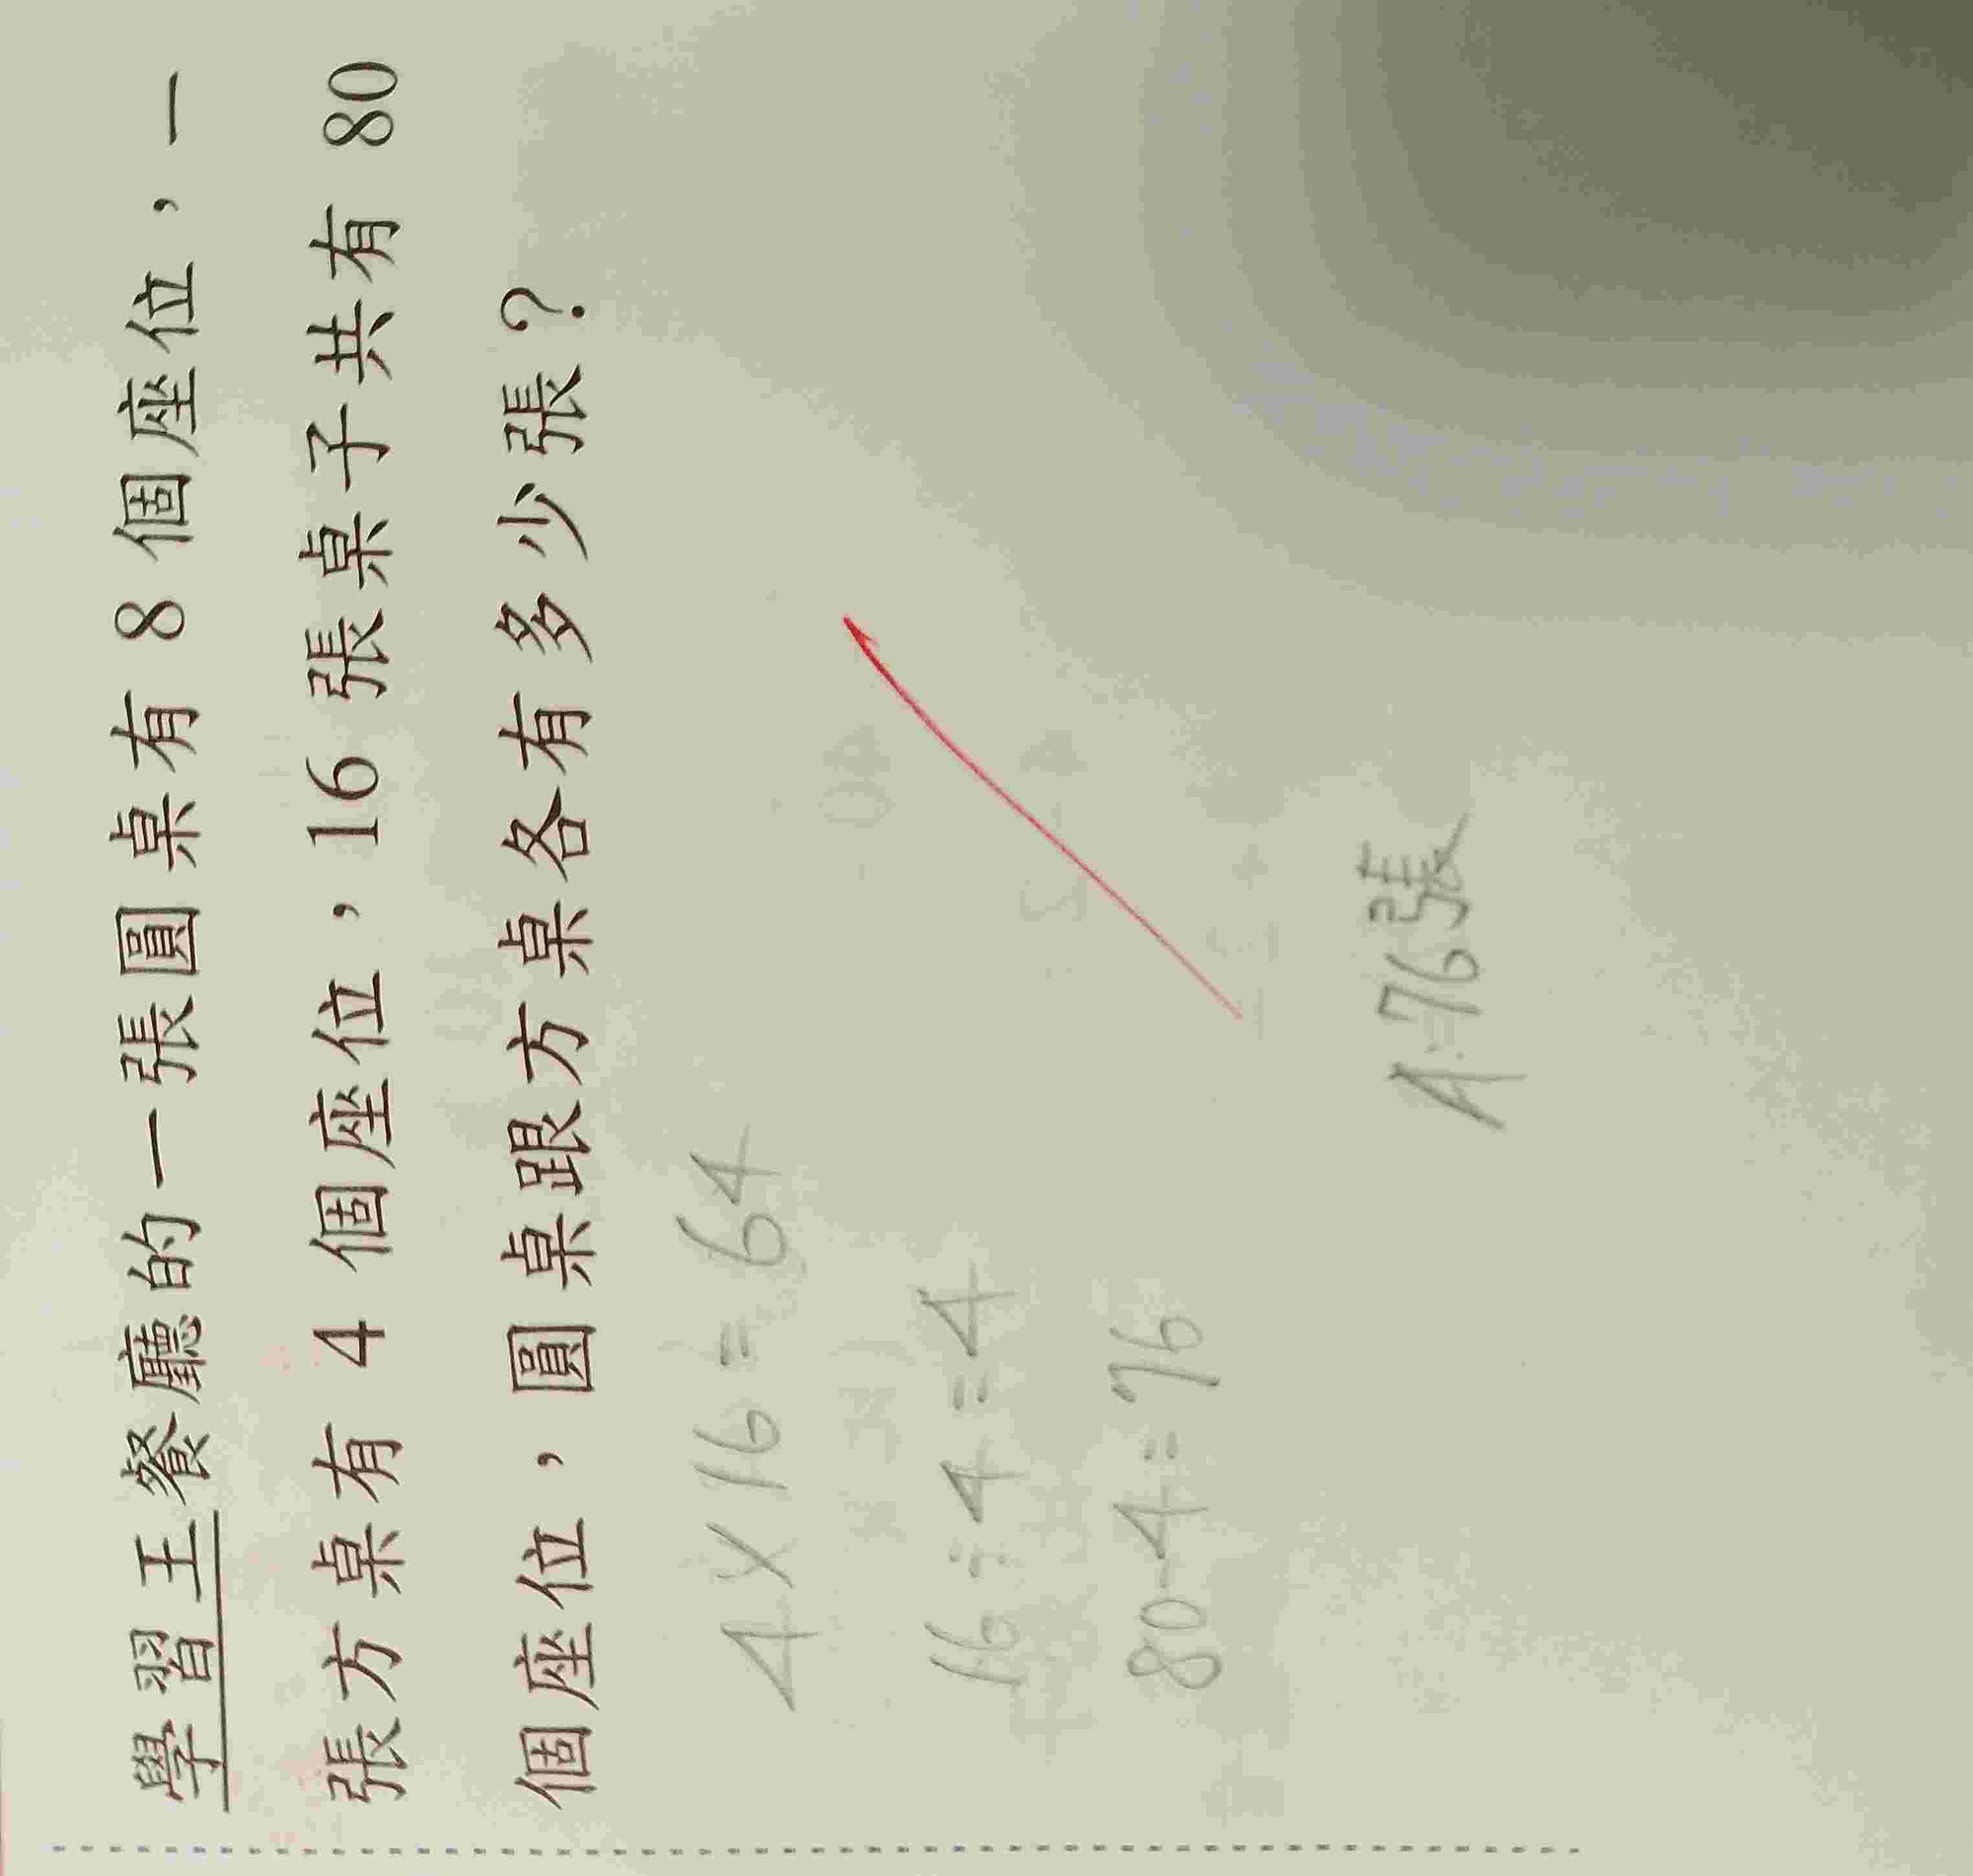 學習王餐廳的一張圓桌有 8 個座位，一
張方桌有 4 個座位，16 張桌子共有 80
個座位，圓桌跟方桌各有多少張？
4×16=64
16÷4=4
80-4=76
A:76張